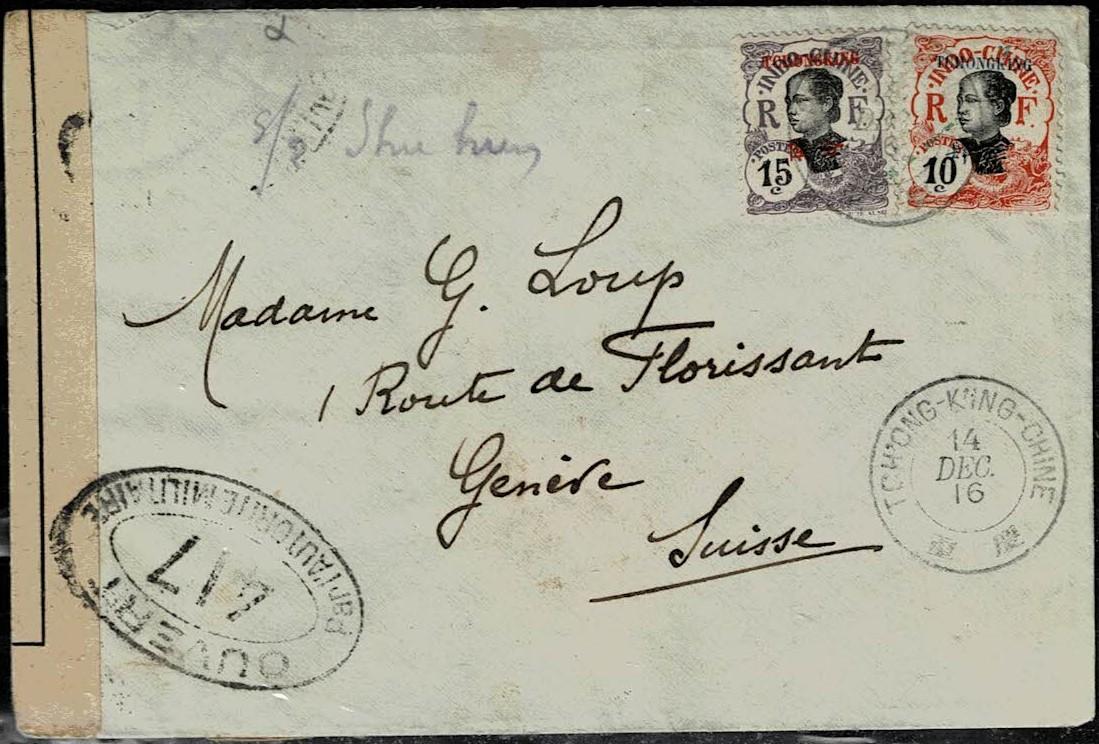 INDO-CHINE
TCHONGKING
R F
POSTES
15 c
INDO-CHINE
TCHONGKING
R F
POSTES
10 c
Madame G. Loup
1 Route de Florissant
Genève
Suisse
TCH'ONG-K'ING-CHINE
14
DEC.
16
重 慶
OUVERT
417
PAR L'AUTORITE MILITAIRE